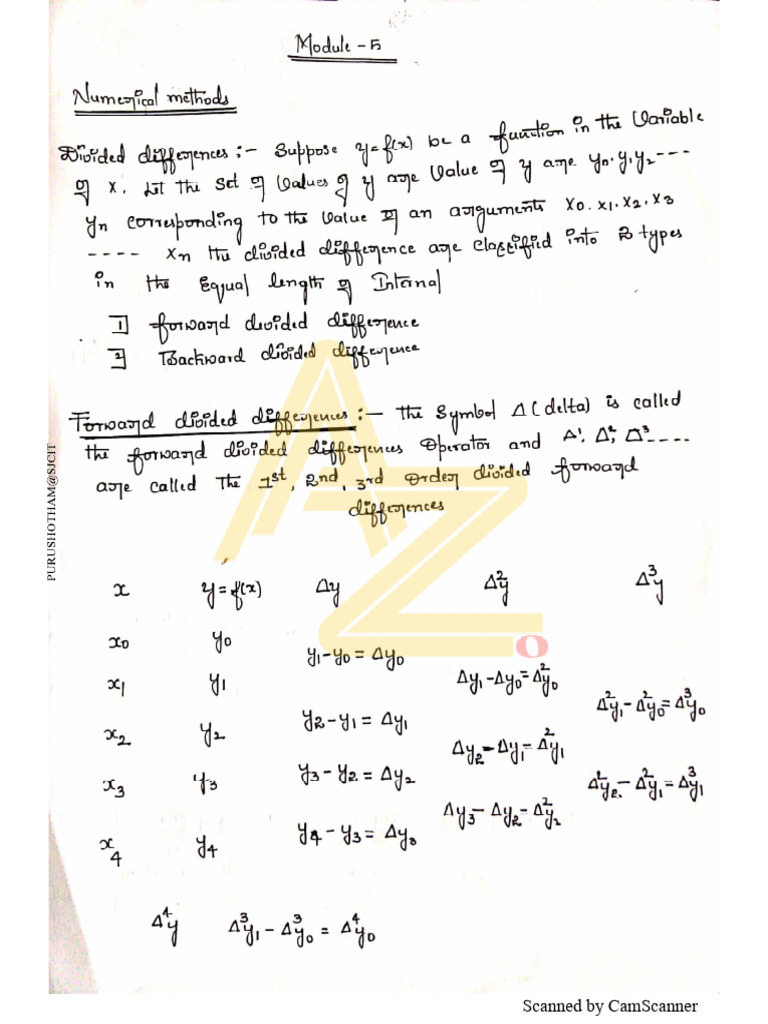 Module - 5
Numerical methods
Divided differences :- Suppose y=f(x) be a function in the Variable
of x. Let the set of Values of y are Value of y are y0.y1y2 ---
yn corresponding to the value of an arguments x0.x1.x2.x3
---- xn the divided difference are classified into 2 types
in the Equal length of Internal
1] forward devided difference
2] Backward divided difference
Forward divided differences :- the Symbol Δ (delta) is called
the forward divided differences Operator and Δ¹, Δ², Δ³....
are called The 1st, 2nd, 3rd Order divided forward
differences
PURUSHOTHAM@SJCIT
AZ
x y = f(x) Δy Δ²y Δ³y
x0 y0
y1-y0 = Δy0
x1 y1 Δy1-Δy0=Δ²y0
y2-y1 = Δy1 Δ²y1-Δ²y0=Δ³y0
x2 y2 Δy2-Δy1=Δ²y1
x3 y3 y3-y2 = Δy2 Δ²y2-Δ²y1=Δ³y1
Δy3-Δy2-Δ²y2
x4 y4 y4-y3 = Δy3
Δ⁴y Δ³y1-Δ³y0 = Δ⁴y0
Scanned by CamScanner